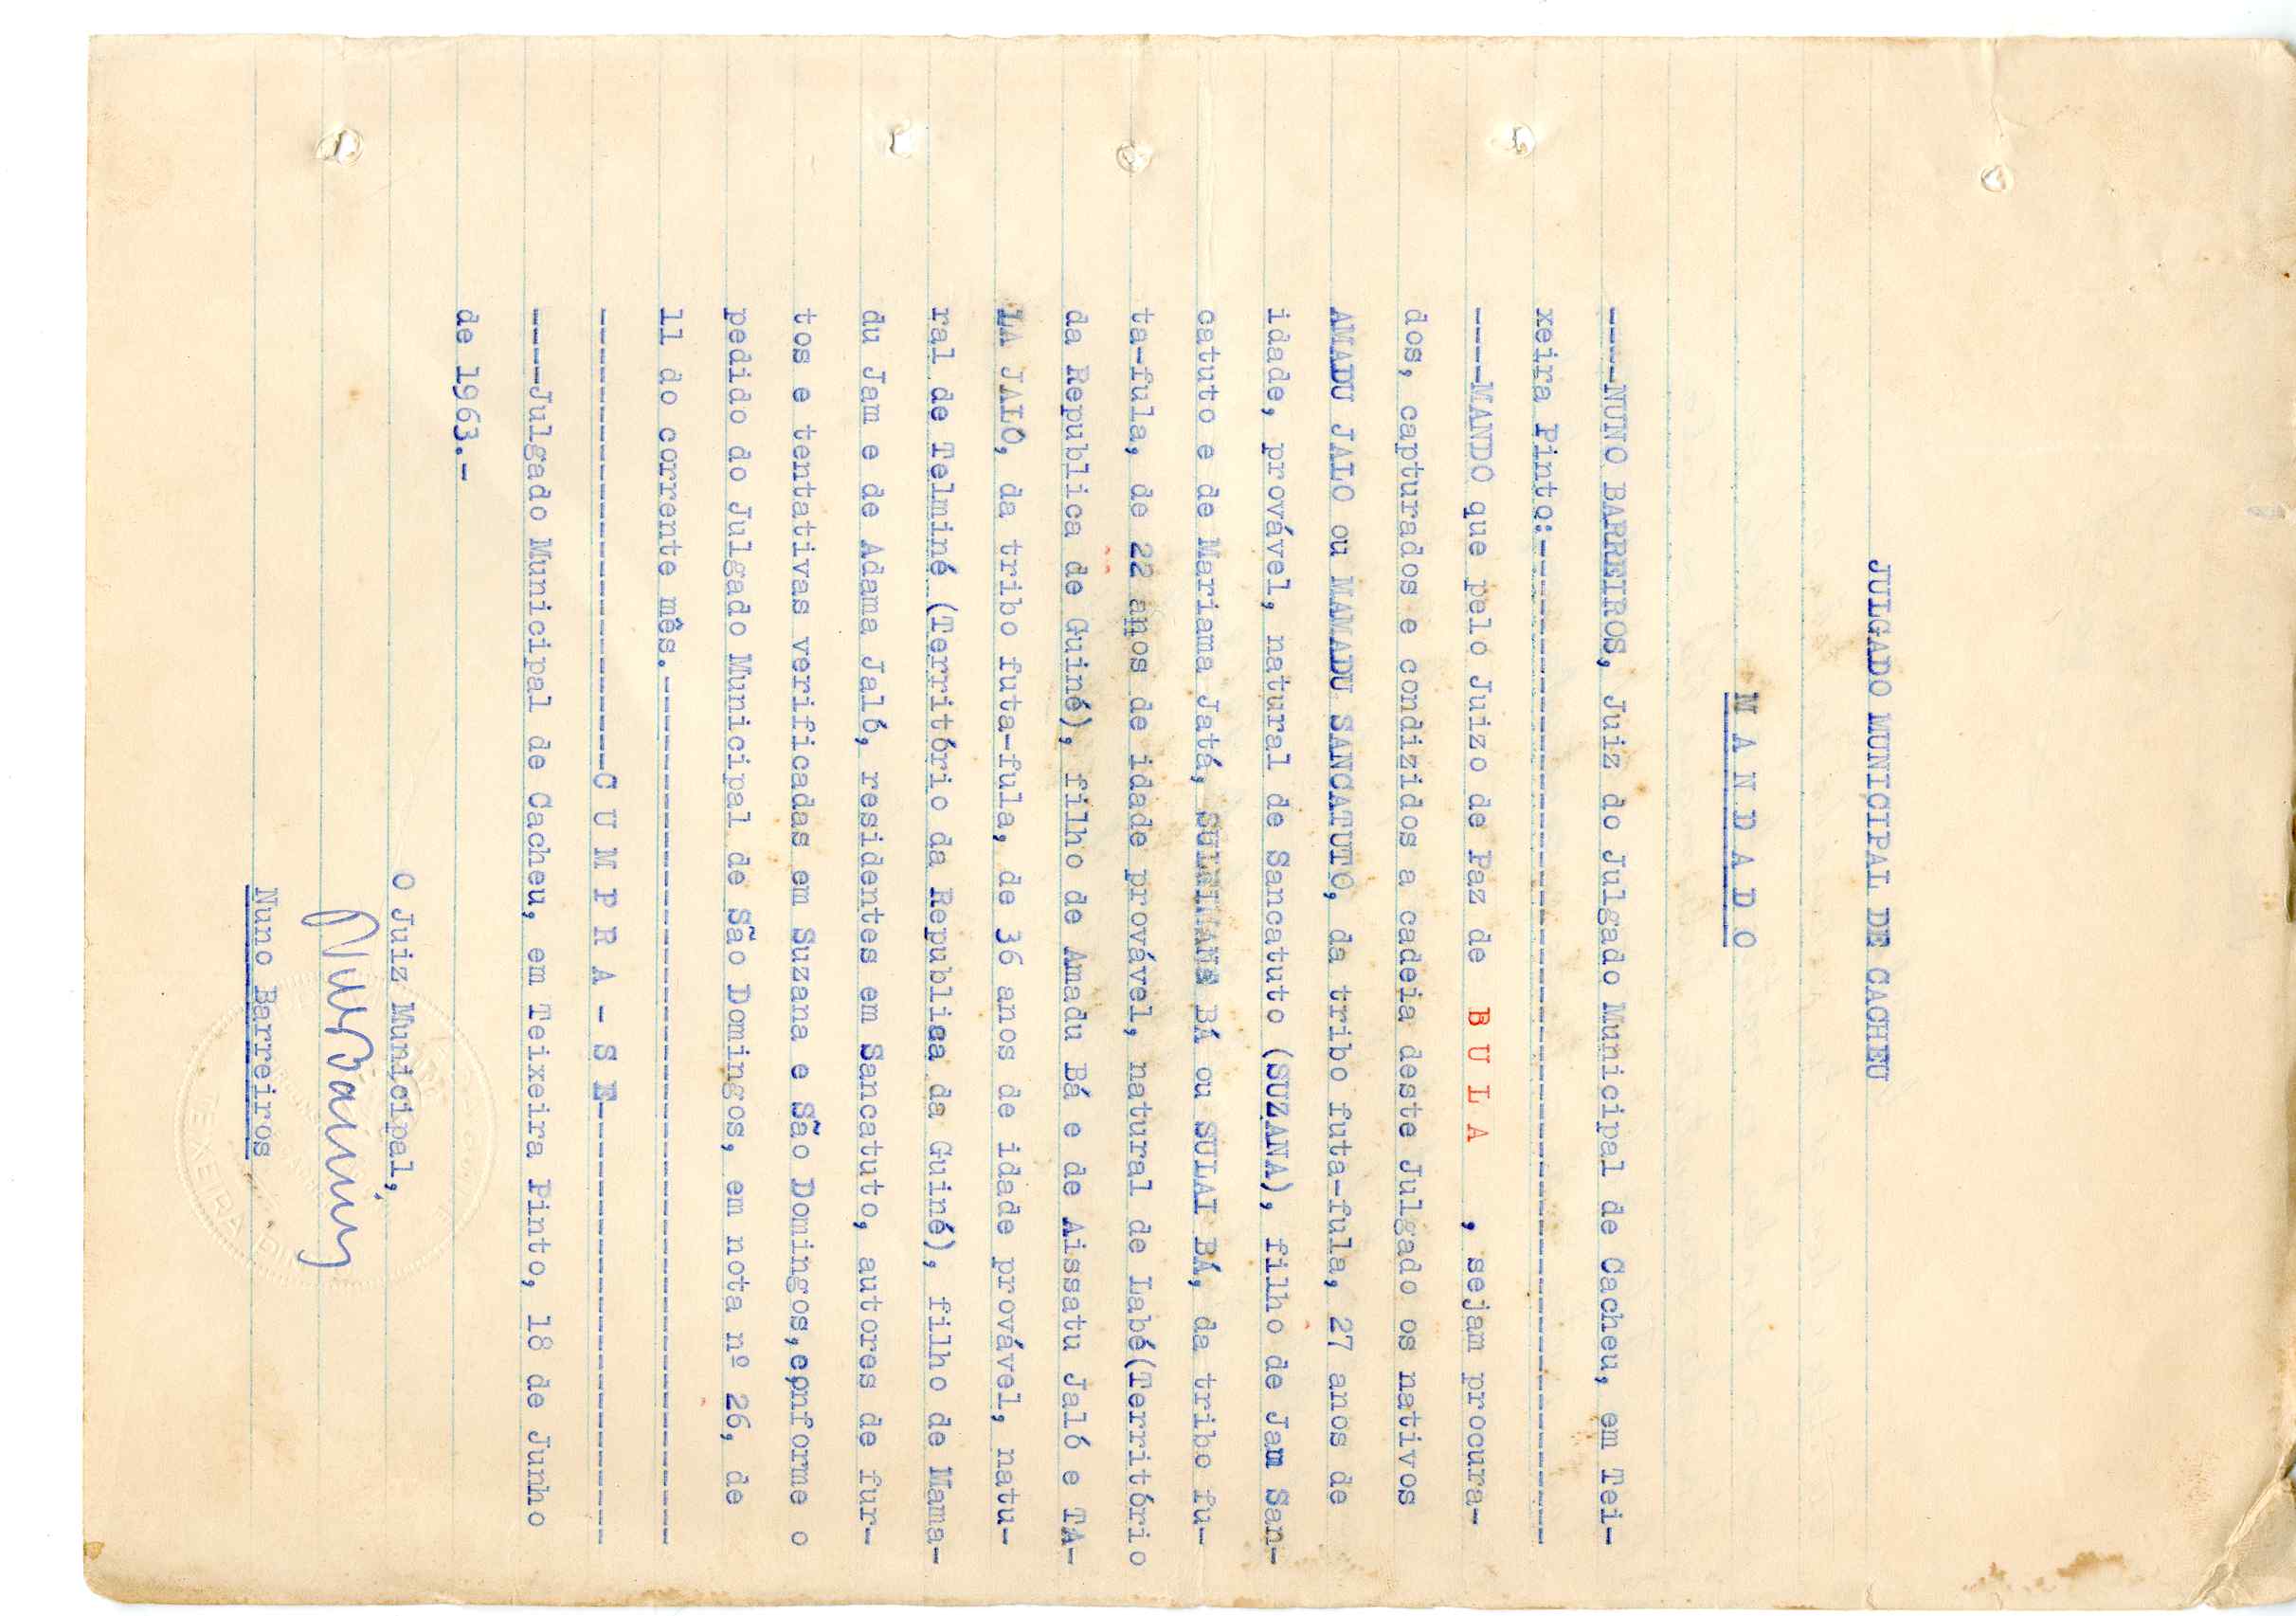 JULGADO MUNICIPAL DE CACHEU
M A N D A D O
----NUNO BARREIROS, Juiz do Julgado Municipal de Cacheu, em Tei-
xeira Pinto:---------------------------------------------------
----MANDO que pelo Juizo de Paz de B U L A , sejam procura-
dos, capturados e condizidos a cadeia deste Julgado os nativos
AMADU JALO ou MAMADU SANCATUTO, da tribo futa-fula, 27 anos de
idade, provável, natural de Sancatuto (SUZANA), filho de Jam San-
catuto e de Mariama Jatá, SULEIMANE BÁ ou SULAI BÁ, da tribo fu-
ta-fula, de 22 anos de idade provável, natural de Labé(Território
da Republica de Guiné), filho de Amadu Bá e de Aissatu Jaló e TA-
LA JALO, da tribo futa-fula, de 36 anos de idade provável, natu-
ral de Telminé (Território da Republica da Guiné), filho de Mama-
du Jam e de Adama Jaló, residentes em Sancatuto, autores de fur-
tos e tentativas verificadas em Suzana e São Domingos,conforme o
pedido do Julgado Municipal de São Domingos, em nota nº 26, de
11 do corrente mês.---------------------------------------------
-----------------------------C U M P R A - S E-----------------------------
----Julgado Municipal de Cacheu, em Teixeira Pinto, 18 de Junho
de 1963.-
O Juiz Municipal,
Nuno Barreiros
Nuno Barreiros
TEIXEIRA PINTO